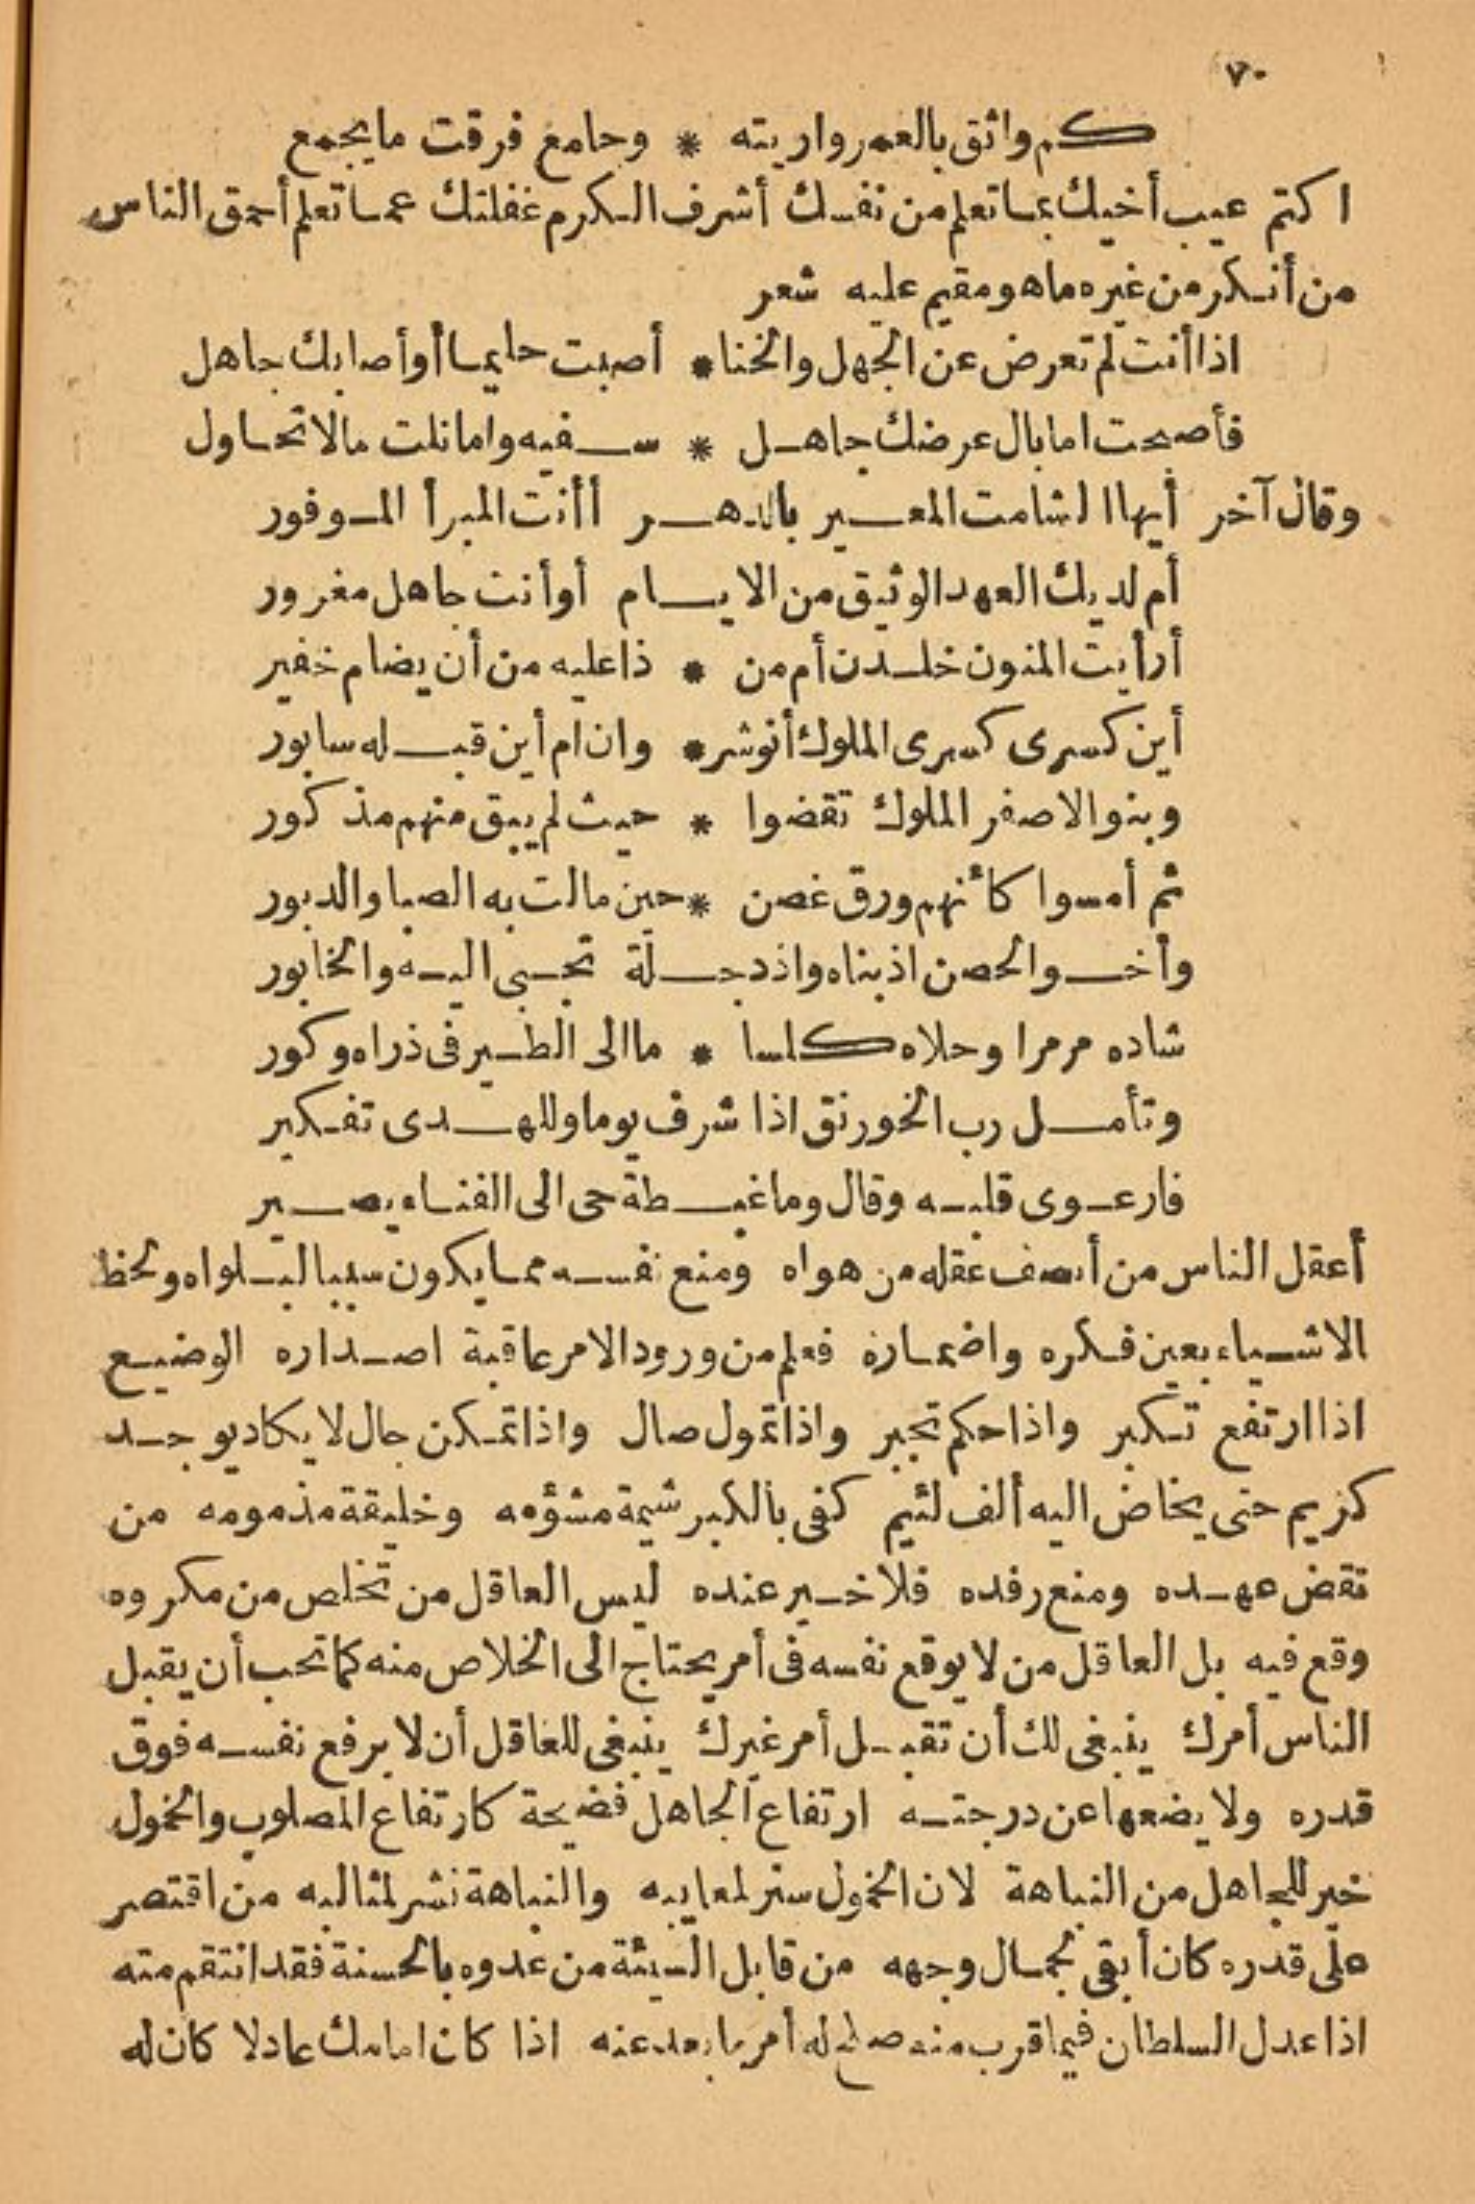 ٧٠
كم واثق بالعمر واريته * وجامع فرقت ما يجمع
اكتم عيب أخيك بما تعلم من نفسك أشرف الكرم غفلتك عما تعلم أحمق الناس
من أنكر من غيره ما هو مقيم عليه شعر
اذا أنت لم تعرض عن الجهل والخنا * أصبت حليما أو أصابك جاهل
فأصبحت اما نال عرضك جاهل * سفيه واما نلت مالا تحاول
وقال آخر أيها الشامت المعير بالدهر أأنت المبرأ الموفور
أم لديك العهد الوثيق من الايام أو أنت جاهل مغرور
أرأيت المنون خلدن أم من * ذا عليه من أن يضام خفير
أين كسرى كسرى الملوك أنوشر * وان ام أين قبله سابور
وبنو الاصفر الملوك تقضوا * حيث لم يبق منهم مذكور
ثم أمسوا كأنهم ورق غصن * حين مالت به الصبا والدبور
وأخو الحصن اذ بناه واذ دجلة تجبى اليه والخابور
شاده مرمرا وحلاه كلسا * ما الى الطير فى ذراه وكور
وتأمل رب الخورنق اذا شرف يوما وللهدى تفكير
فارعوى قلبه وقال وما غبطة حى الى الفناء يصير
أعقل الناس من أنصف عقله من هواه ومنع نفسه مما يكون سببا لبلواه ولحظ
الاشياء بعين فكره واضماره فعلم من ورود الامر عاقبة اصداره الوضيع
اذا ارتفع تكبر واذا حكم تجبر واذا تمول صال واذا تمكن جال لا يكاد يوجد
كريم حتى يخاض اليه ألف لئيم كفى بالكبر شيمة مشؤمه وخليقة مذمومه من
نقض عهده ومنع رفده فلا خير عنده ليس العاقل من تخلص من مكروه
وقع فيه بل العاقل من لا يوقع نفسه فى أمر يحتاج الى الخلاص منه كما تحب أن يقبل
الناس أمرك ينبغى لك أن تقبل أمر غيرك ينبغى للعاقل أن لا يرفع نفسه فوق
قدره ولا يضعها عن درجته ارتفاع الجاهل فضيحة كارتفاع المصلوب والخمول
خير للجاهل من النباهة لان الخمول ستر لمعايبه والنباهة نشر لمثالبه من اقتصر
على قدره كان أبقى لجمال وجهه من قابل السيئة من عدوه بالحسنة فقد انتقم منه
اذا عدل السلطان فيما قرب منه صلح له أمر ما بعد عنه اذا كان امامك عادلا كان له